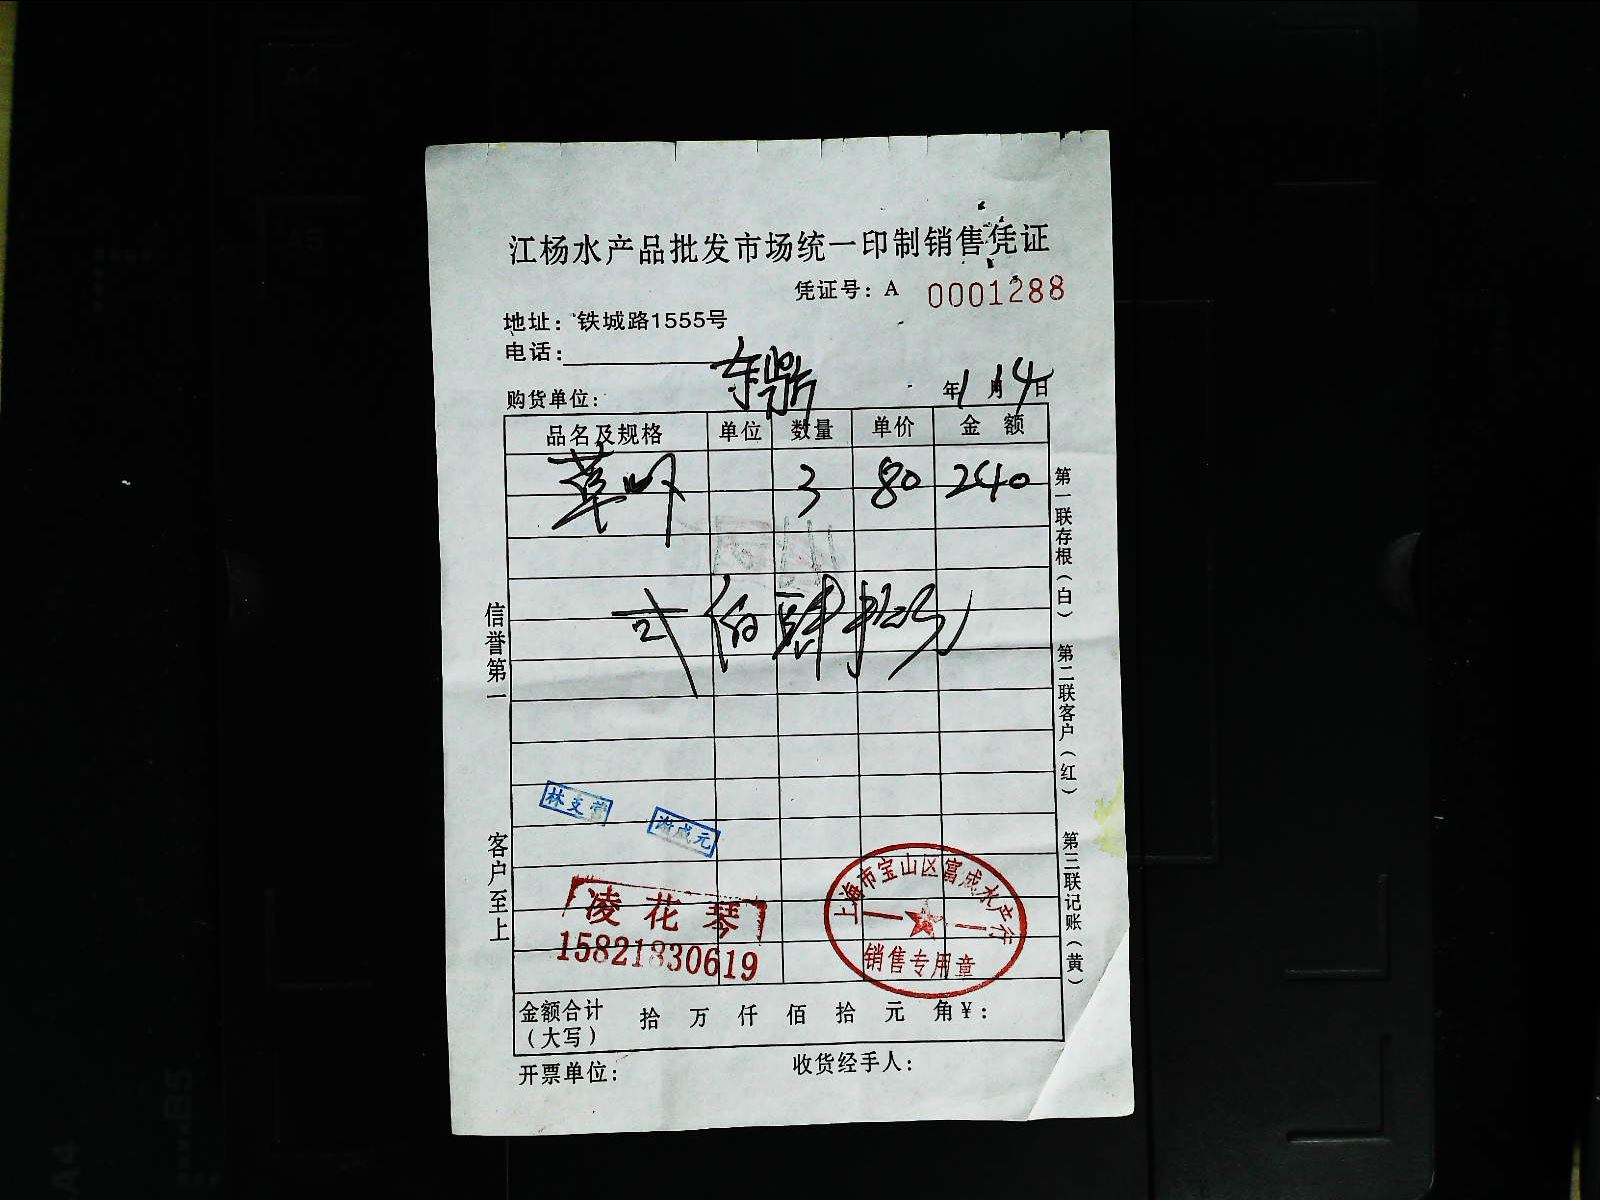 江杨水产品批发市场统一印制销售凭证
凭证号：A 0001288
地址：铁城路1555号
电话：
购货单位： 东鼎
年1月14日
品名及规格 单位 数量 单价 金额
草虾 3 80 240
弍佰肆拾
信誉第一
客户至上
第一联存根（白）
第二联客户（红）
第三联记账（黄）
林支营
谢成元
凌花琴
15821830619
上海市宝山区富成水产行
销售专用章
金额合计 拾 万 仟 佰 拾 元 角 ¥：
（大写）
开票单位：
收货经手人：